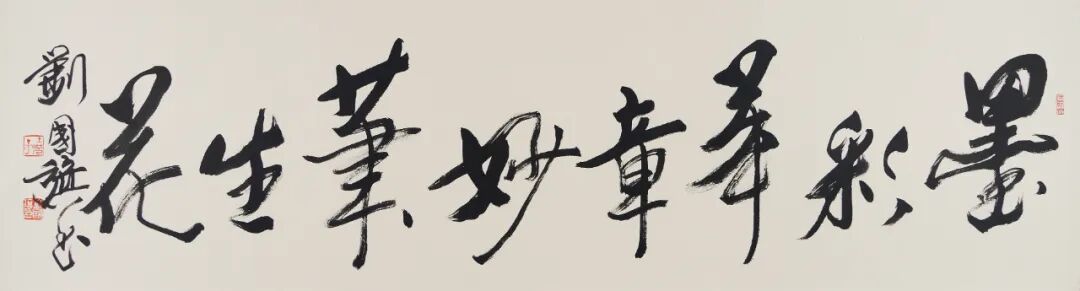 墨彩華章妙筆生花
劉國书